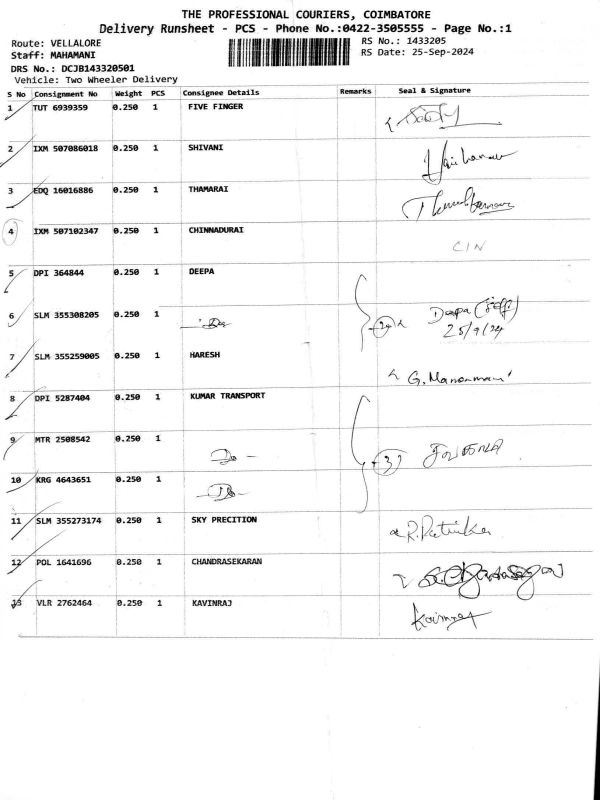 THE PROFESSIONAL COURIERS, COIMBATORE
Delivery Runsheet - PCS - Phone No.:0422-3505555 - Page No.:1
Route: VELLALORE RS No.: 1433205
Staff: MAHAMANI RS Date: 25-Sep-2024
DRS No.: DCJB143320501
Vehicle: Two Wheeler Delivery
S No Consignment No Weight PCS Consignee Details Remarks Seal & Signature
1 TUT 6939359 0.250 1 FIVE FINGER
2 IXM 507086018 0.250 1 SHIVANI
3 EDQ 16016886 0.250 1 THAMARAI
4 IXM 507102347 0.250 1 CHINNADURAI C/N
5 DPI 364844 0.250 1 DEEPA
6 SLM 355308205 0.250 1 - Do - Deepa
25/9/24
7 SLM 355259005 0.250 1 HARESH G. Manonmani
8 DPI 5287404 0.250 1 KUMAR TRANSPORT
9 MTR 2508542 0.250 1 - Do - 3
10 KRG 4643651 0.250 1 - Do -
11 SLM 355273174 0.250 1 SKY PRECITION
12 POL 1641696 0.250 1 CHANDRASEKARAN
13 VLR 2762464 0.250 1 KAVINRAJ